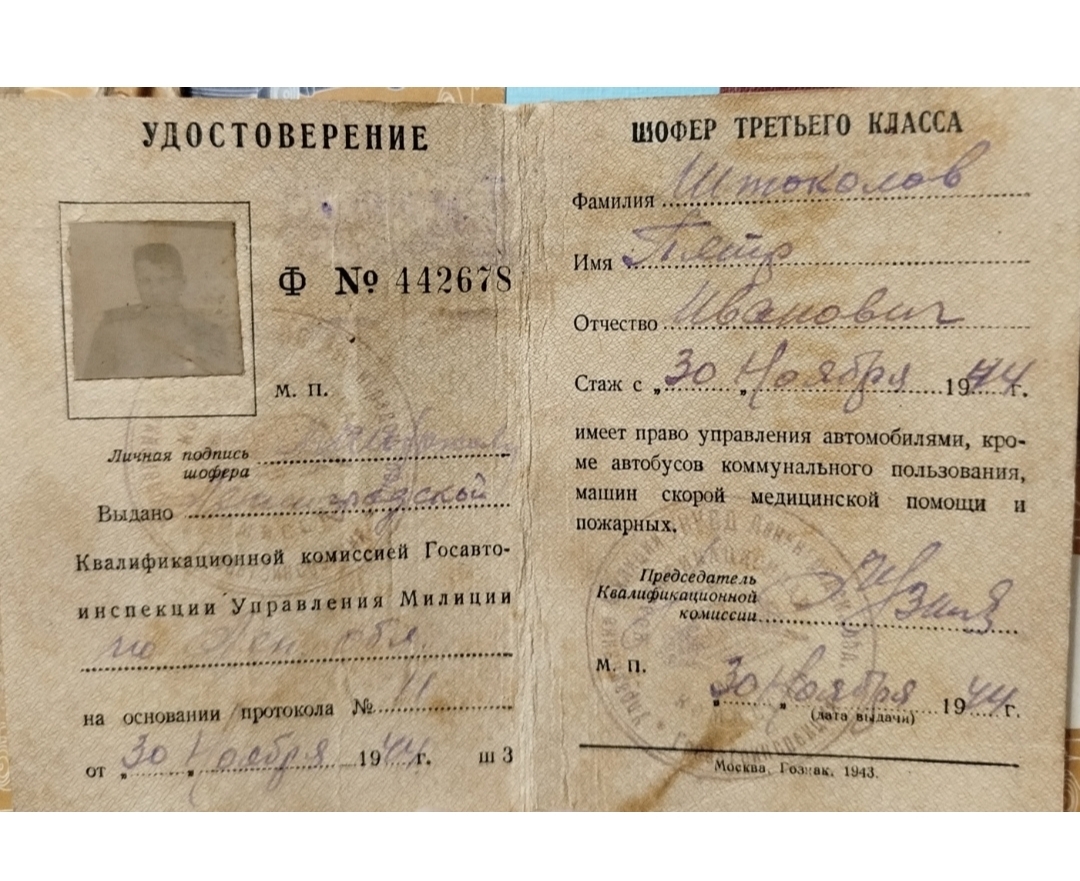 УДОСТОВЕРЕНИЕ
Ф № 442678
М. П.
Личная подпись
шофера
Выдано Ленинградской
Квалификационной комиссией Госавто-
инспекции Управления Милиции
по Лен. обл.
на основании протокола № 11
от „30 Ноября 1944 г. ш 3
ШОФЕР ТРЕТЬЕГО КЛАССА
Фамилия Штоколов
Имя Пётр
Отчество Иванович
Стаж с „30 „ Ноября 1944 г.
имеет право управления автомобилями, кро-
ме автобусов коммунального пользования,
машин скорой медицинской помощи и
пожарных.
Председатель
Квалификационной
комиссии
М. П.
„30 „ Ноября 1944 г.
(дата выдачи)
Москва, Гознак. 1943.